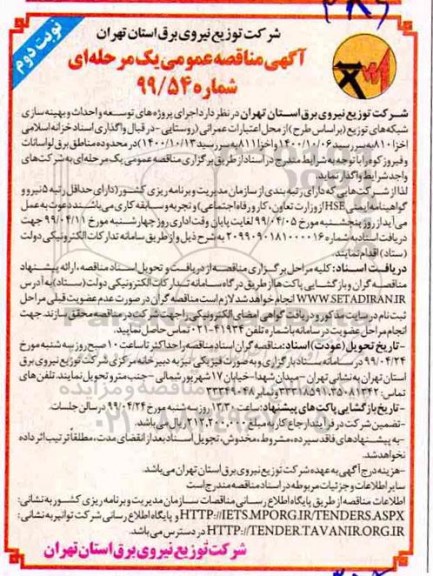 نوبت دوم
شرکت توزیع نیروی برق استان تهران
آگهی مناقصه عمومی یک مرحله‌ای
شماره ۹۹/۵۴
شرکت توزیع نیروی برق استان تهران در نظر دارد اجرای پروژه های توسعه و احداث و بهینه سازی
شبکه‌های توزیع (براساس طرح) از محل اعتبارات عمرانی (روستایی - در قبال واگذاری اسناد خزانه اسلامی
اخزا ۸۱۰ به سررسید ۱۴۰۰/۱۰/۰۶ و اخزا ۸۱۱ به سررسید ۱۴۰۰/۱۰/۱۳) در محدوده مناطق برق لواسانات
و فیروزکوه را با توجه به شرایط مندرج در اسناد از طریق برگزاری مناقصه عمومی یک مرحله‌ای به شرکت‌های
واجد شرایط واگذار نمایند.
لذا از شرکت‌هایی که دارای رتبه بندی از سازمان مدیریت و برنامه ریزی کشور (دارای حداقل رتبه ۵ نیرو و
گواهینامه ایمنی HSE از وزارت تعاون، کار و رفاه اجتماعی) و تجربه و سابقه کاری می‌باشند دعوت به عمل
می‌آید از روز پنجشنبه مورخ ۹۹/۰۴/۰۵ لغایت پایان وقت اداری روز چهارشنبه مورخ ۹۹/۰۴/۱۱ جهت
دریافت اسناد به شماره ۲۰۹۹۰۹۰۱۸۱۰۰۰۰۱۶ به شرح ذیل و از طریق سامانه تدارکات الکترونیکی دولت
(ستاد) اقدام نمایند.
دریافت اسناد: کلیه مراحل برگزاری مناقصه از دریافت و تحویل اسناد مناقصه، ارائه پیشنهاد
مناقصه‌گران و بازگشایی پاکت‌ها از طریق درگاه سامانه تدارکات الکترونیکی دولت (ستاد) به آدرس
WWW.SETADIRAN.IR انجام خواهد شد لازم است مناقصه گران در صورت عدم عضویت قبلی مراحل
ثبت نام در سایت مذکور و دریافت گواهی امضای الکترونیکی را جهت شرکت در مناقصه محقق سازند. جهت
انجام مراحل عضویت در سامانه با شماره تلفن ۴۱۹۳۴-۰۲۱ تماس حاصل نمایید.
- تاریخ تحویل (عودت) اسناد: مناقصه گران اسناد مناقصه را حداکثر تا ساعت ۱۰ صبح روز سه شنبه مورخ
۹۹/۰۴/۲۴ در سامانه ستاد بارگزاری و به صورت فیزیکی نیز به دبیرخانه مرکزی شرکت توزیع نیروی برق
استان تهران به نشانی تهران - میدان شهدا - خیابان ۱۷ شهریور شمالی - جنب مترو تحویل نمایند. تلفن‌های
- تاریخ بازگشایی پاکت های پیشنهاد: ساعت ۱۳:۳۰ روز سه شنبه مورخ ۹۹/۰۴/۲۴ در سالن جلسات.
-تضمین شرکت در فرآیند ارجاع کار به مبلغ ریال می‌باشد.
-به پیشنهادهای فاقد سپرده، مشروط، مخدوش، تحویل اسناد بعد از انقضای مدت، مطلقاً ترتیب اثر داده
نخواهد شد.
-هزینه درج آگهی به عهده شرکت توزیع نیروی برق استان تهران می‌باشد.
سایر اطلاعات و جزئیات مربوطه در اسناد مناقصه مندرج است
اطلاعات مناقصه از طریق پایگاه اطلاع رسانی مناقصات سازمان مدیریت و برنامه ریزی کشور به نشانی:
HTTP://IETS.MPORG.IR/TENDERS.ASPX و پایگاه اطلاع رسانی شرکت توانیر به نشانی:
HTTP://TENDER.TAVANIR.ORG.IR در دسترس می‌باشد.
شرکت توزیع نیروی برق استان تهران